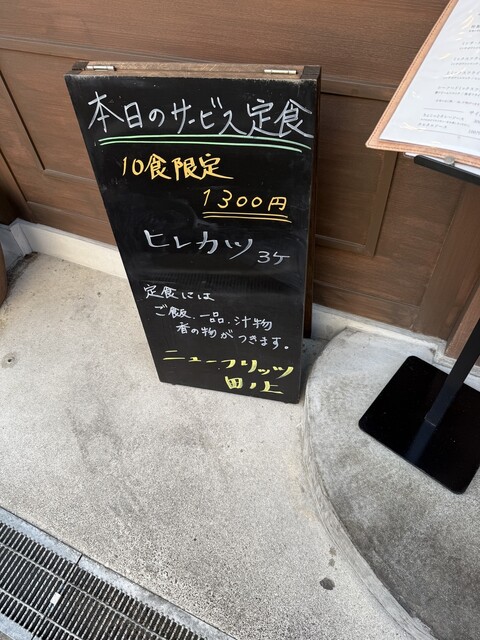 本日のサービス定食
10食限定
1300円
ヒレカツ 3ケ
定食には
ご飯、一品、汁物
香の物がつきます。
ニューフリッツ
田ノ上